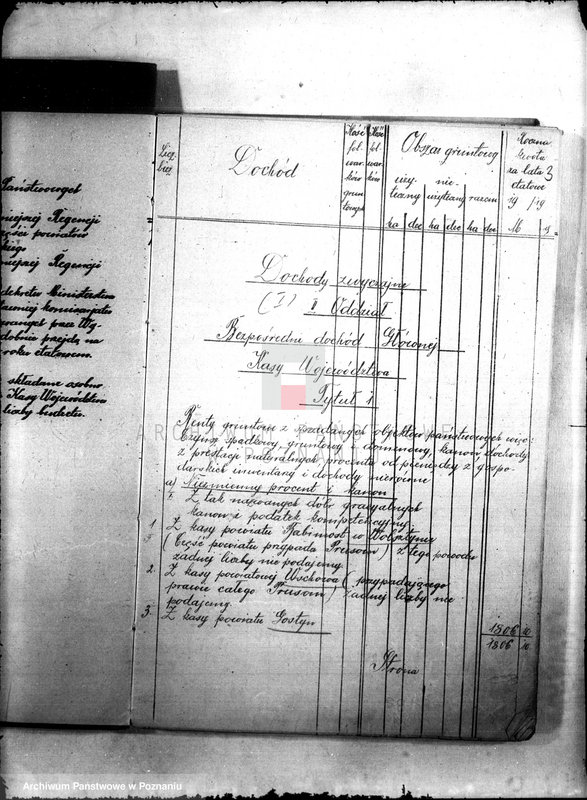 Państwowych
niniejszej Regencji
części powiatów
niniejszej Regencji
dekretu Ministerstwa
przez Wy-
przejdą na
roku etatowem.
składane osobno
Kasy Województwa
liczby budżetu.
Licz
bież
Dochód
Ilość
fol
war
ków
grun
towych
Ilość
fol
war
ków
Obszar gruntowy
uży
teczny
nie
użytkowy
razem
ha
dec
ha
dec
ha
dec
Roczna
kwota
za lata 3
etatowe
19 /19
M
Dochody zwyczajne
(I) II Oddział
Bezpośredni dochód Głównej
Kasy Województwa
Tytuł 1
Renty gruntowe z sprzedanych objektów państwowych wie-
czyny spadkowy, gruntowy i domenowy, kanon dochody
z prestacji naturalnych, procenta od pieniędzy z gospo-
darskich inwentarzy i dochody mierzone
a) Niezmienny procent i kanon
I. Z tak nazwanych dóbr gracyalnych
kanon i podatek kompetencyjny
1 Z kasy powiatu Babimost w Wolsztynie
(Część powiatu przypada Prusom) z tego powodu
żadnej liczby nie podajemy
2. Z kasy powiatowej Wschowa (przypadającego
prawie całego Prusom) żadnej liczby nie
podajemy.
3. Z kasy powiatu Gostyn
1806 10
1806 10
Strona
ARCHIWUM PAŃSTWOWE
W POZNANIU
Archiwum Państwowe w Poznaniu